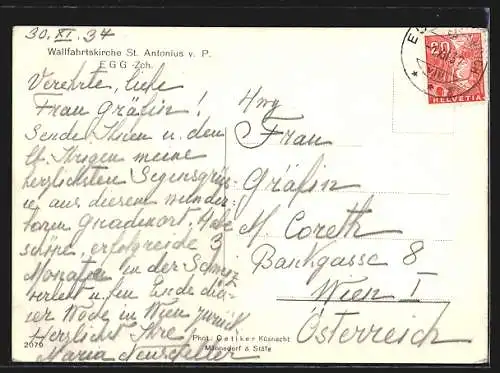 30. XI. 34
Wallfahrtskirche St. Antonius v. P.
EGG Zch.
Verehrte, liebe
Frau Gräfin!
Sende Ihnen u. den
lb. Ihrigen meine
herzlichsten Segensgrüs-
se aus diesem wunder-
baren Gnadenort. Habe
schöne, erfolgreiche 3
Monate in der Schweiz
verlebt u. bin Ende die-
ser Woche in Wien zurück.
Herzlichst Ihre
Maria
2676
Phot. Oetiker Küsnacht
Männedorf & Stäfa
20
HELVETIA
Frau
Gräfin
M. Coreth
Bankgasse 8
Wien I
Österreich